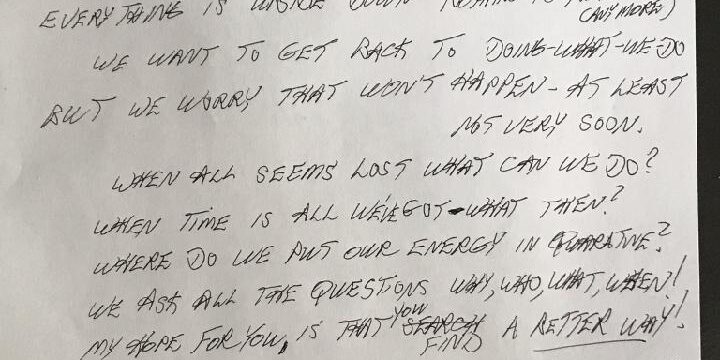 EVERYTHING IS
(ANY MORE)
WE WANT TO GET BACK TO DOING-WHAT-WE-DO
BUT WE WORRY THAT WON'T HAPPEN - AT LEAST
NOT VERY SOON.
WHEN ALL SEEMS LOST WHAT CAN WE DO?
WHEN TIME IS ALL WE'VE GOT - WHAT THEN?
WHERE DO WE PUT OUR ENERGY IN QUARATINE?
WE ASK ALL THE QUESTIONS WHY, WHO, WHAT, WHEN!
MY HOPE FOR YOU, IS THAT YOU SEARCH FIND A BETTER WAY!